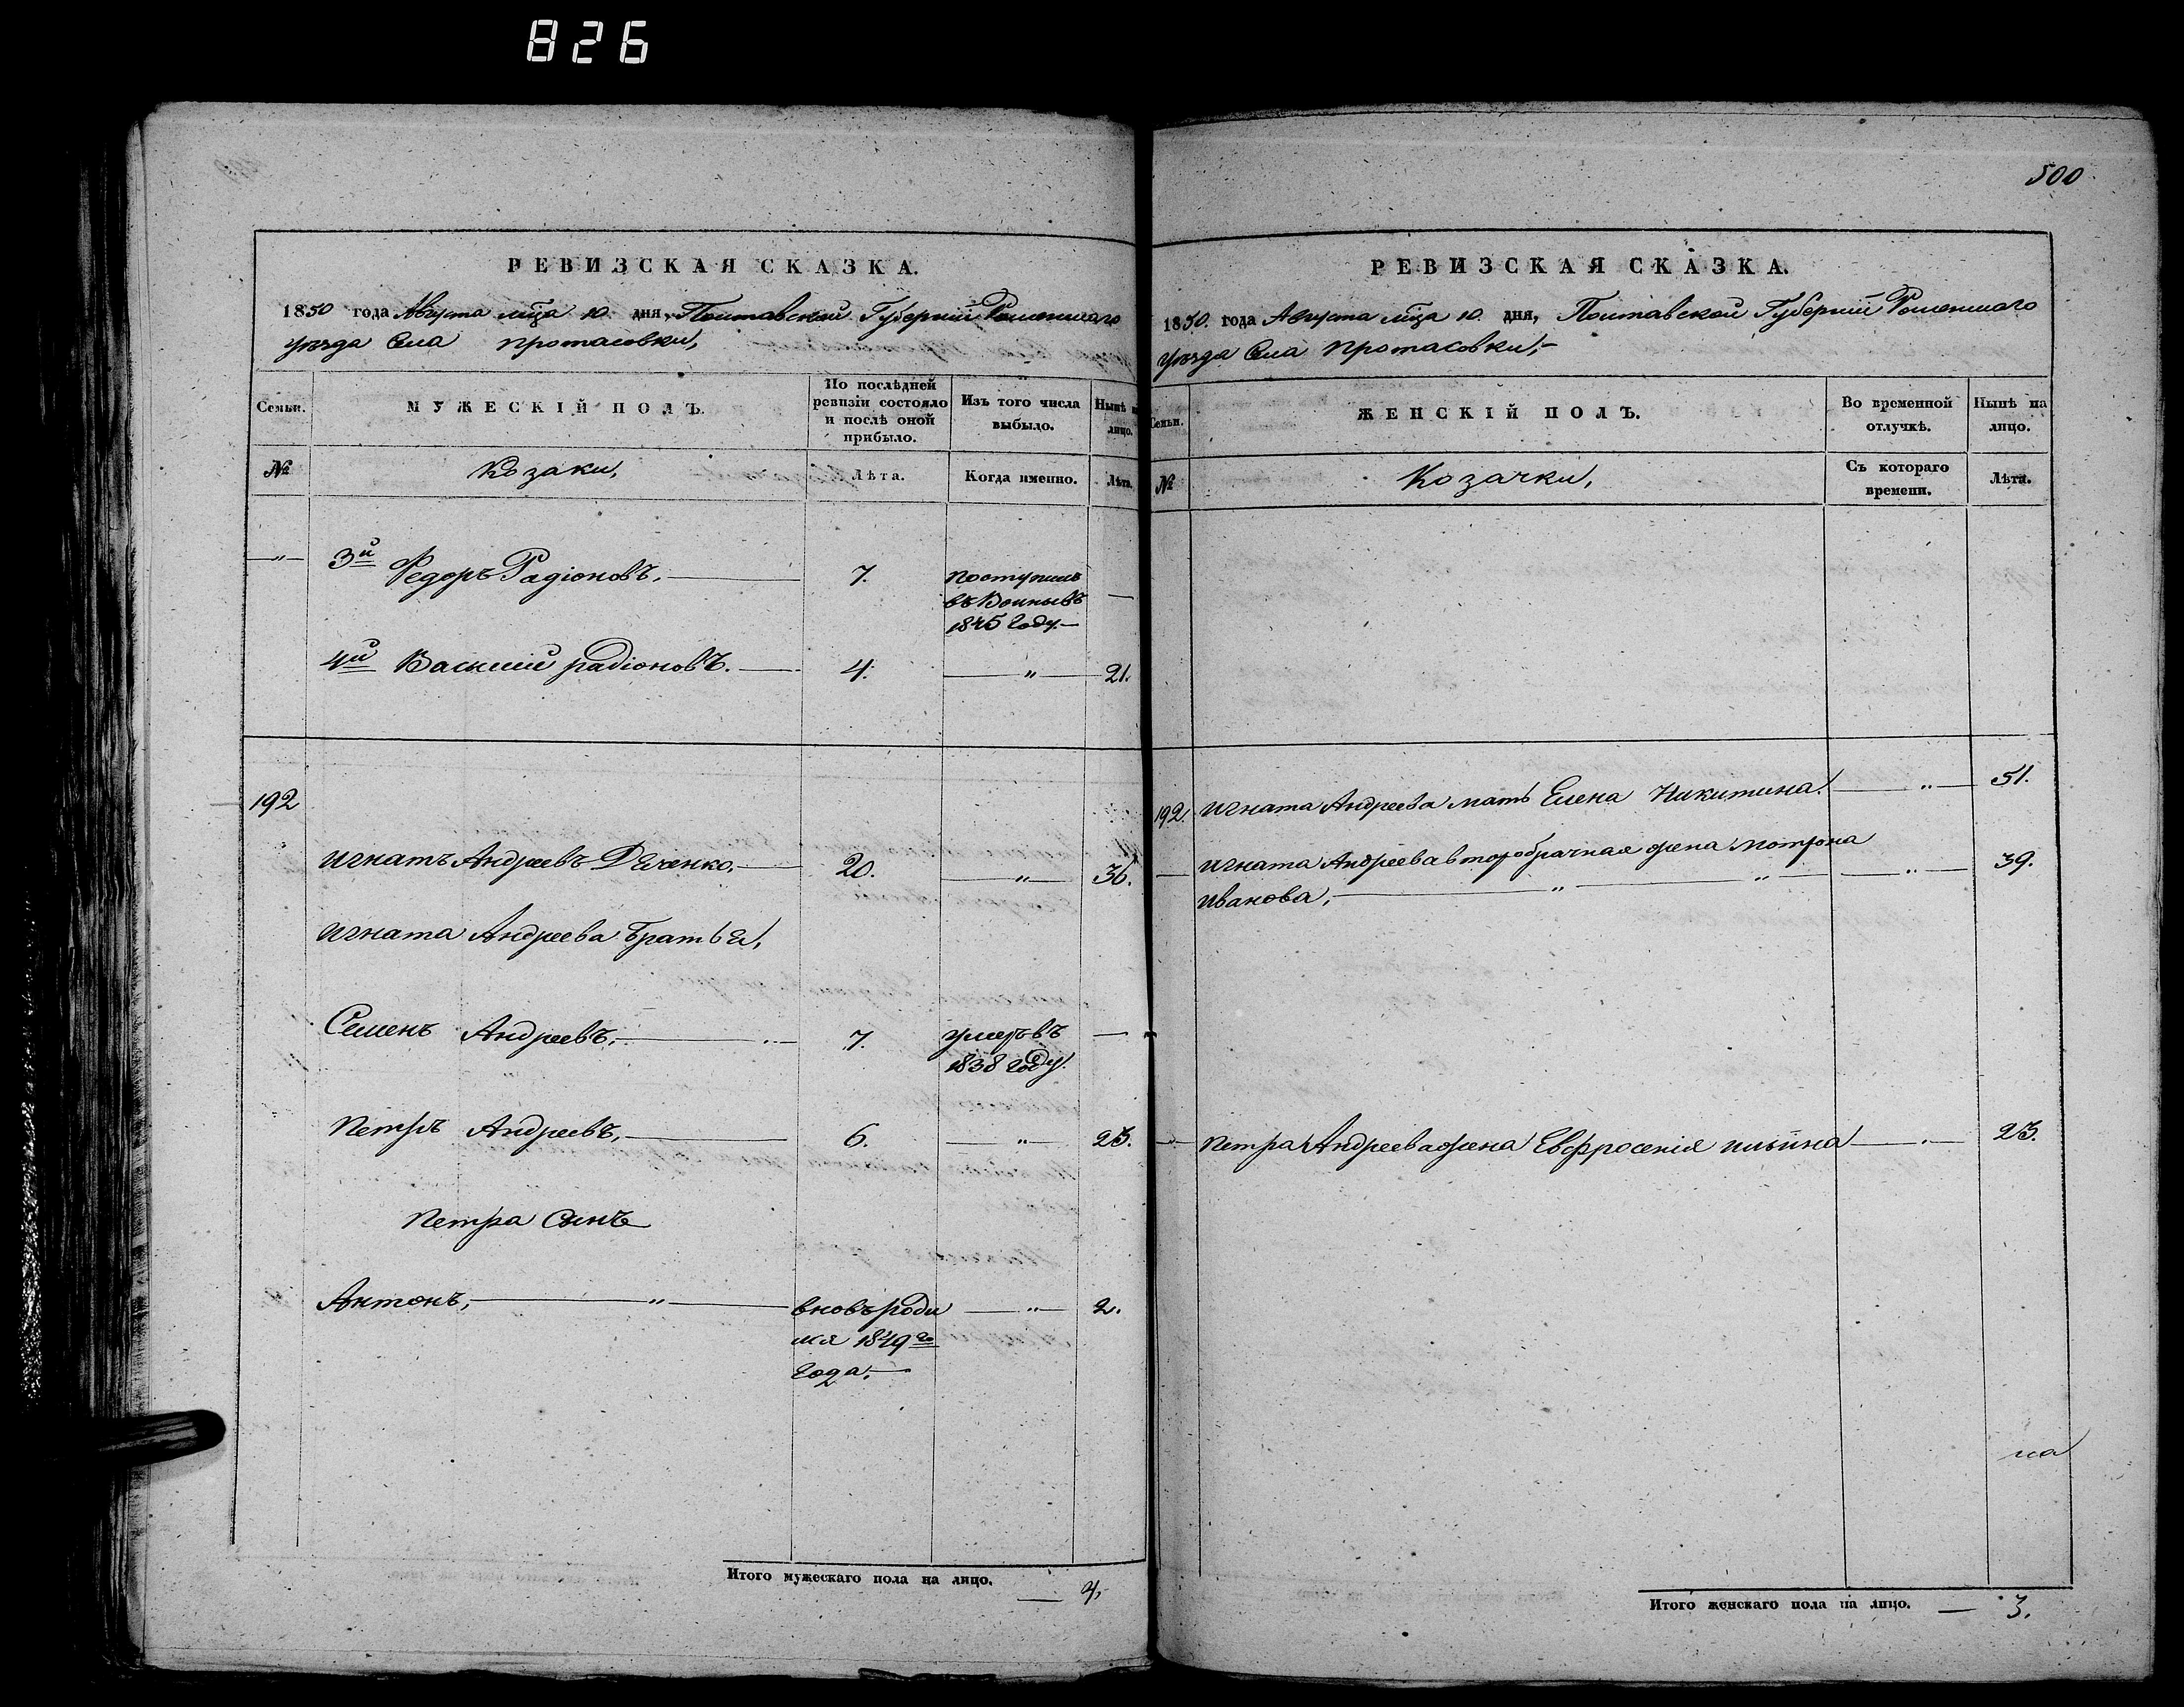 826
РЕВИЗСКАЯ СКАЗКА.
1850 года Августа мца 10 дня, Полтавской Губерніи Роменскаго
уѣзда Села протасовки,
Семьи.
МУЖЕСКІЙ ПОЛЪ.
По послѣдней
ревизіи состояло
и послѣ оной
прибыло.
Изъ того числа
выбыло.
Нынѣ на
лицо.
№
Козаки,
Лѣта.
Когда именно.
Лѣта.
—"— 3й Федоръ Радіоновъ. — 7. поступилъ
въ 1845 году. —
4й Василій радіоновъ. — 4. —"— 21.
192
игнатъ Андреевъ — 20. —"— 36.
игната Андреева братья,
Семенъ Андреевъ, — 7. умеръ въ —
1838 году.
петръ Андреевъ, — 6. —"— 23.
петра сынъ
Антонъ, —"— вновь роди —"— 2.
лся 1849го
года. —
Итого мужескаго пола на лицо. — 4,
500
РЕВИЗСКАЯ СКАЗКА.
1850. года Августа мца 10 дня, Полтавской Губерніи Роменскаго
уѣзда Села протасовки, —
Семьи.
ЖЕНСКІЙ ПОЛЪ.
Во временной
отлучкѣ.
Нынѣ на
лицо.
№
Козачки,
Съ котораго
времени.
Лѣта.
192. игната Андреева мать Елена Никитина. —"— 51.
— игната Андреева второбрачная жена мотрона
иванова, —"—"— —"— 39.
—"— петра Андреева жена Евфросенія ильина —"— 23.
на
Итого женскаго пола на лицо. — 3.